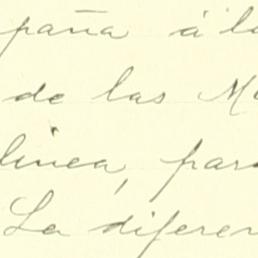 paña á la
de las M
linea, para
La diferen